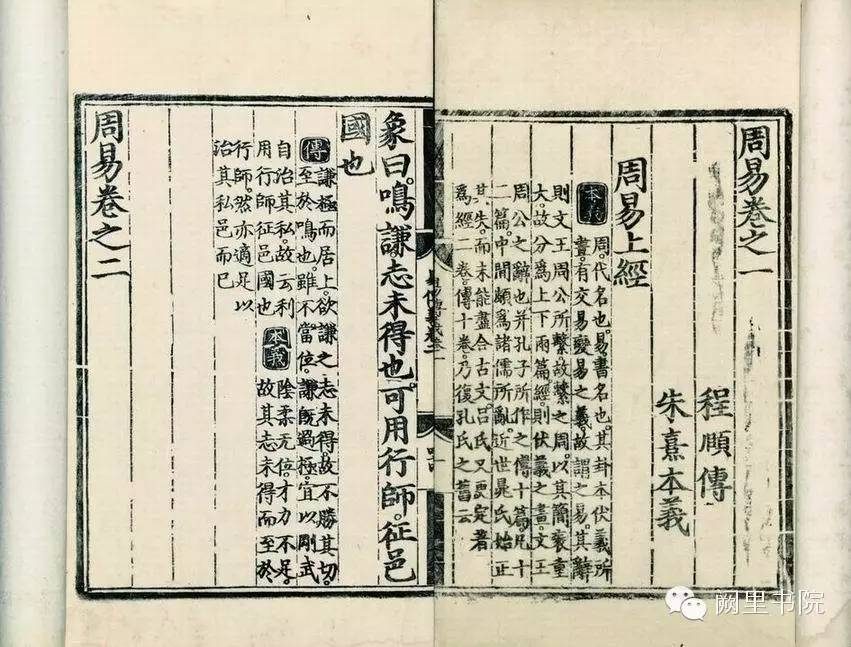 周易卷之一
程頤傳
朱熹本義
周易上經
本義
周。代名也。易書名也。其卦本伏羲所
畫。有交易變易之義。故謂之易。其辭
則文王周公所繫。故繫之周。以其簡袠重
大。故分爲上下兩篇。經則伏羲之畫。文王
周公之辭也。并孔子所作之傳十篇。凡十
二篇。中間頗爲諸儒所亂。近世晁氏始正
其失。而未能盡合古文。呂氏又更定著
爲經二卷。傳十卷。乃復孔氏之舊云
象曰。鳴謙志未得也。可用行師。征邑
國也
傳
謙極而居上。欲謙之志未得。故不勝其切。
至於鳴也。雖不當位。謙旣過極。宜以剛武
自治其私。故云利
用行師征邑國也
本義
陰柔无位。才力不足。
故其志未得。而至於
行師。然亦適足以
治其私邑而已
周易卷之二
阙里书院